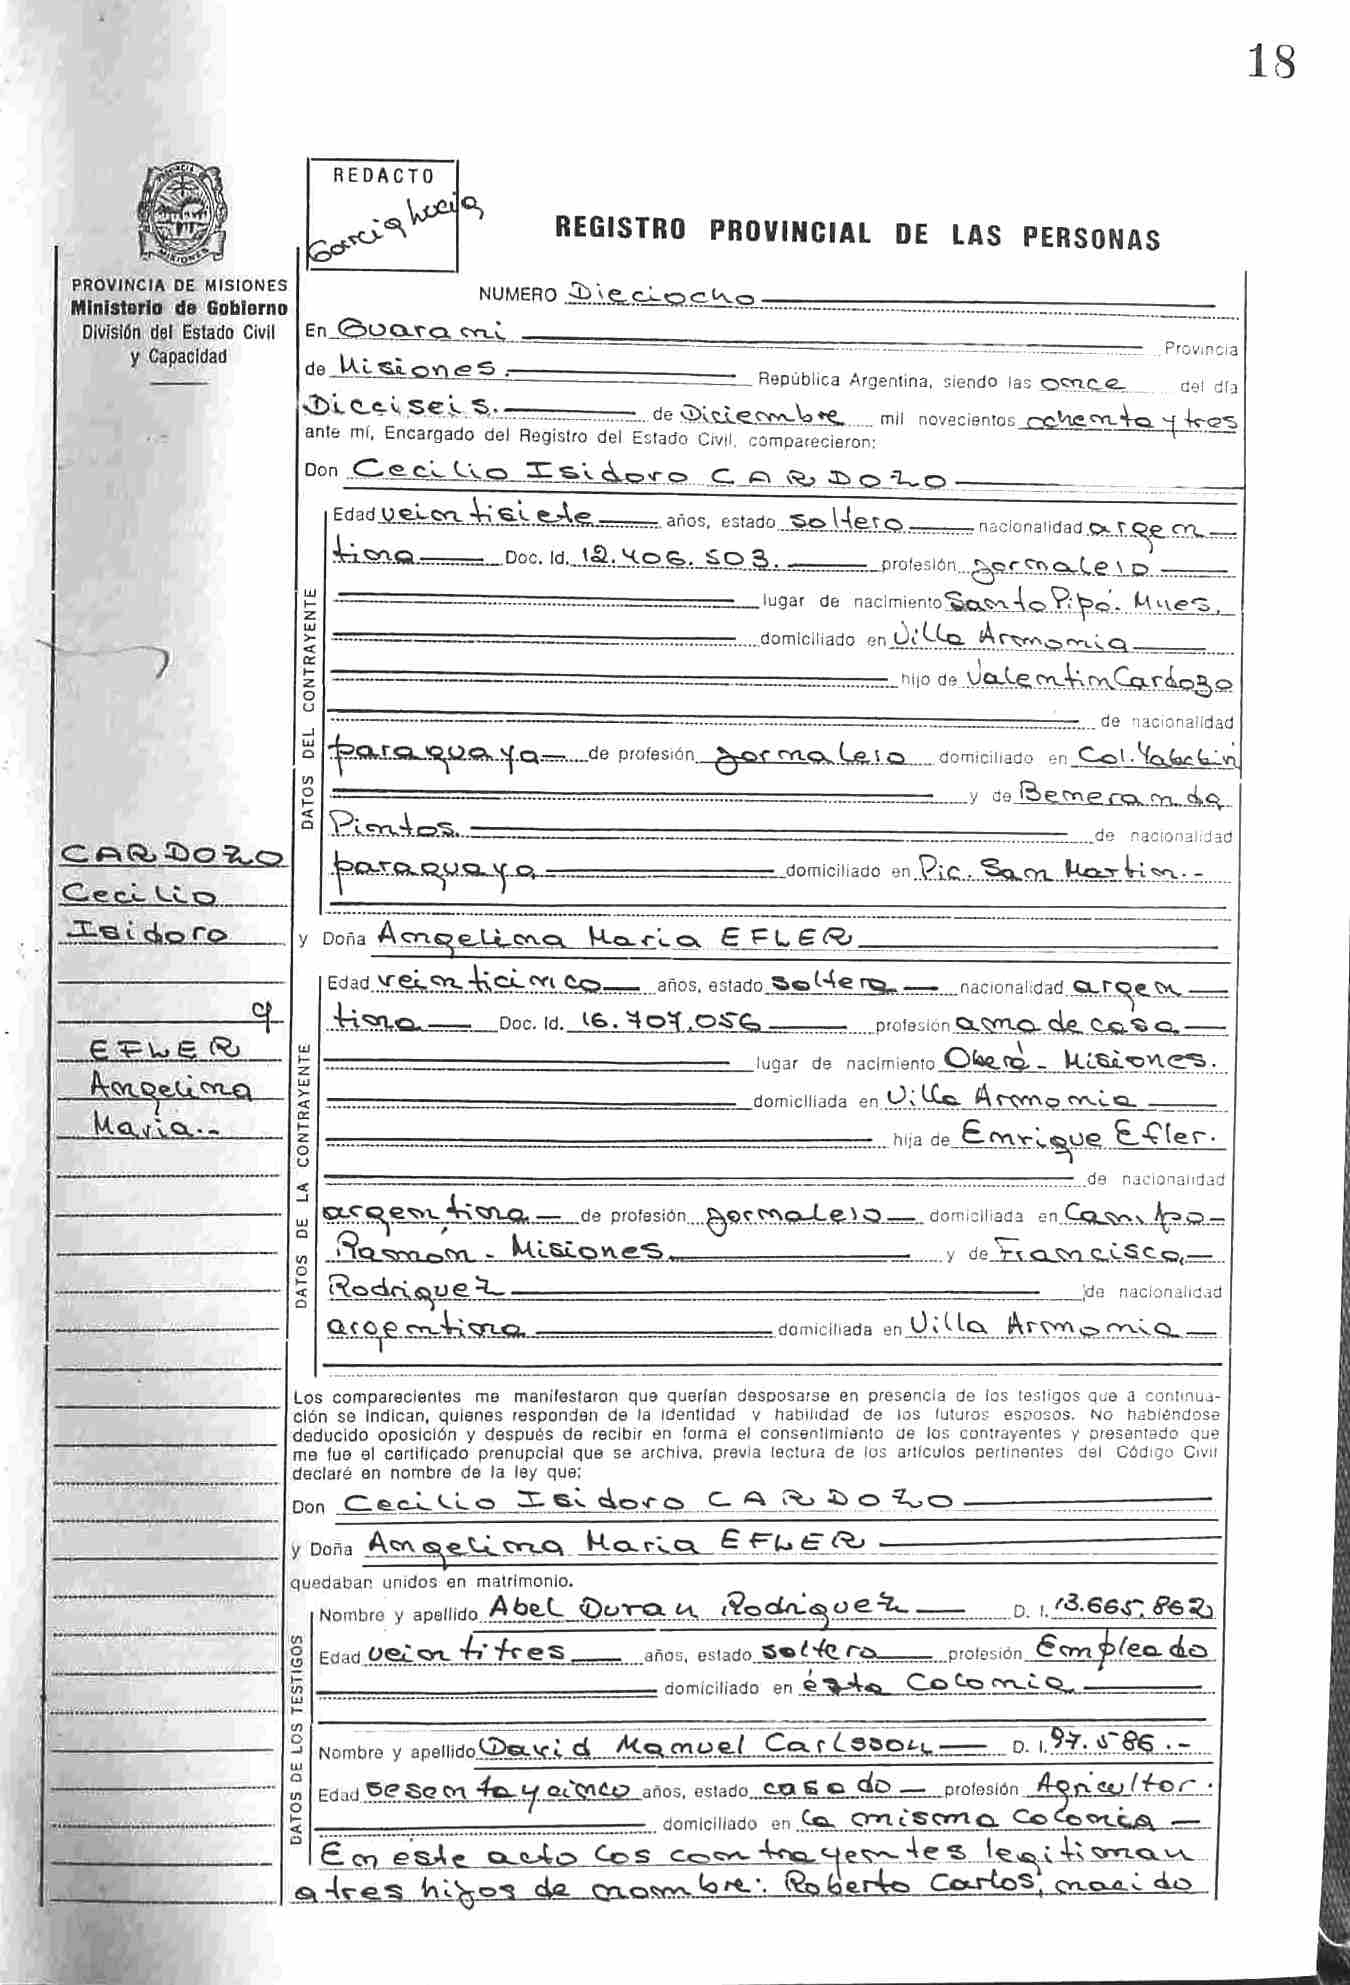 18
REDACTO
Garcia Lucia
REGISTRO PROVINCIAL DE LAS PERSONAS
PROVINCIA DE MISIONES
Ministerio de Gobierno
División del Estado Civil
y Capacidad
NUMERO Dieciocho
En Guarani Provincia
de Misiones. República Argentina, siendo las once del día
Dieciseis. de Diciembre mil novecientos ochenta y tres
ante mí, Encargado del Registro del Estado Civil, comparecieron:
Don Cecilio Isidoro CARDOZO
Edad veintisiete años, estado soltero nacionalidad argen
tina Doc. Id. 12.406.503. profesión jornalero
lugar de nacimiento Santo Pipó. Mnes.
domiciliado en Villa Armonia
hijo de Valentin Cardozo
de nacionalidad
paraguaya de profesión jornalero domiciliado en Col.
y de Beneranda
Pintos. de nacionalidad
paraguaya domiciliado en Pic. San Martin.-
DATOS DEL CONTRAYENTE
CARDOZO
Cecilio
Isidoro
EFLER
Angelina
Maria.-
y Doña Angelina Maria EFLER
Edad veinticinco años, estado soltera nacionalidad argen
tina Doc. Id. 16.707.056 profesión ama de casa
lugar de nacimiento Oberá - Misiones.
domiciliada en Villa Armonia
hija de Enrique Efler.
de nacionalidad
argentina de profesión jornalero domiciliada en Campo
Ramón - Misiones y de Francisca
Rodriguez de nacionalidad
argentina domiciliada en Villa Armonia
DATOS DE LA CONTRAYENTE
Los comparecientes me manifestaron que querían desposarse en presencia de los testigos que a continua-
ción se indican, quienes responden de la identidad y habilidad de los futuros esposos. No habiéndose
deducido oposición y después de recibir en forma el consentimiento de los contrayentes y presentado que
me fue el certificado prenupcial que se archiva, previa lectura de los artículos pertinentes del Código Civil
declaré en nombre de la ley que:
Don Cecilio Isidoro CARDOZO
y Doña Angelina Maria EFLER
quedaban unidos en matrimonio.
Nombre y apellido Abel Duran Rodriguez D. I. 13.665.862
Edad veintitres años, estado soltero profesión Empleado
domiciliado en ésta Colonia
Nombre y apellido David Manuel Carlsson D. I. 97.586.-
Edad sesenta y cinco años, estado casado profesión Agricultor.
domiciliado en la misma Colonia
DATOS DE LOS TESTIGOS
En este acto los contrayentes legitiman
a tres hijos de nombre: Roberto Carlos, nacido